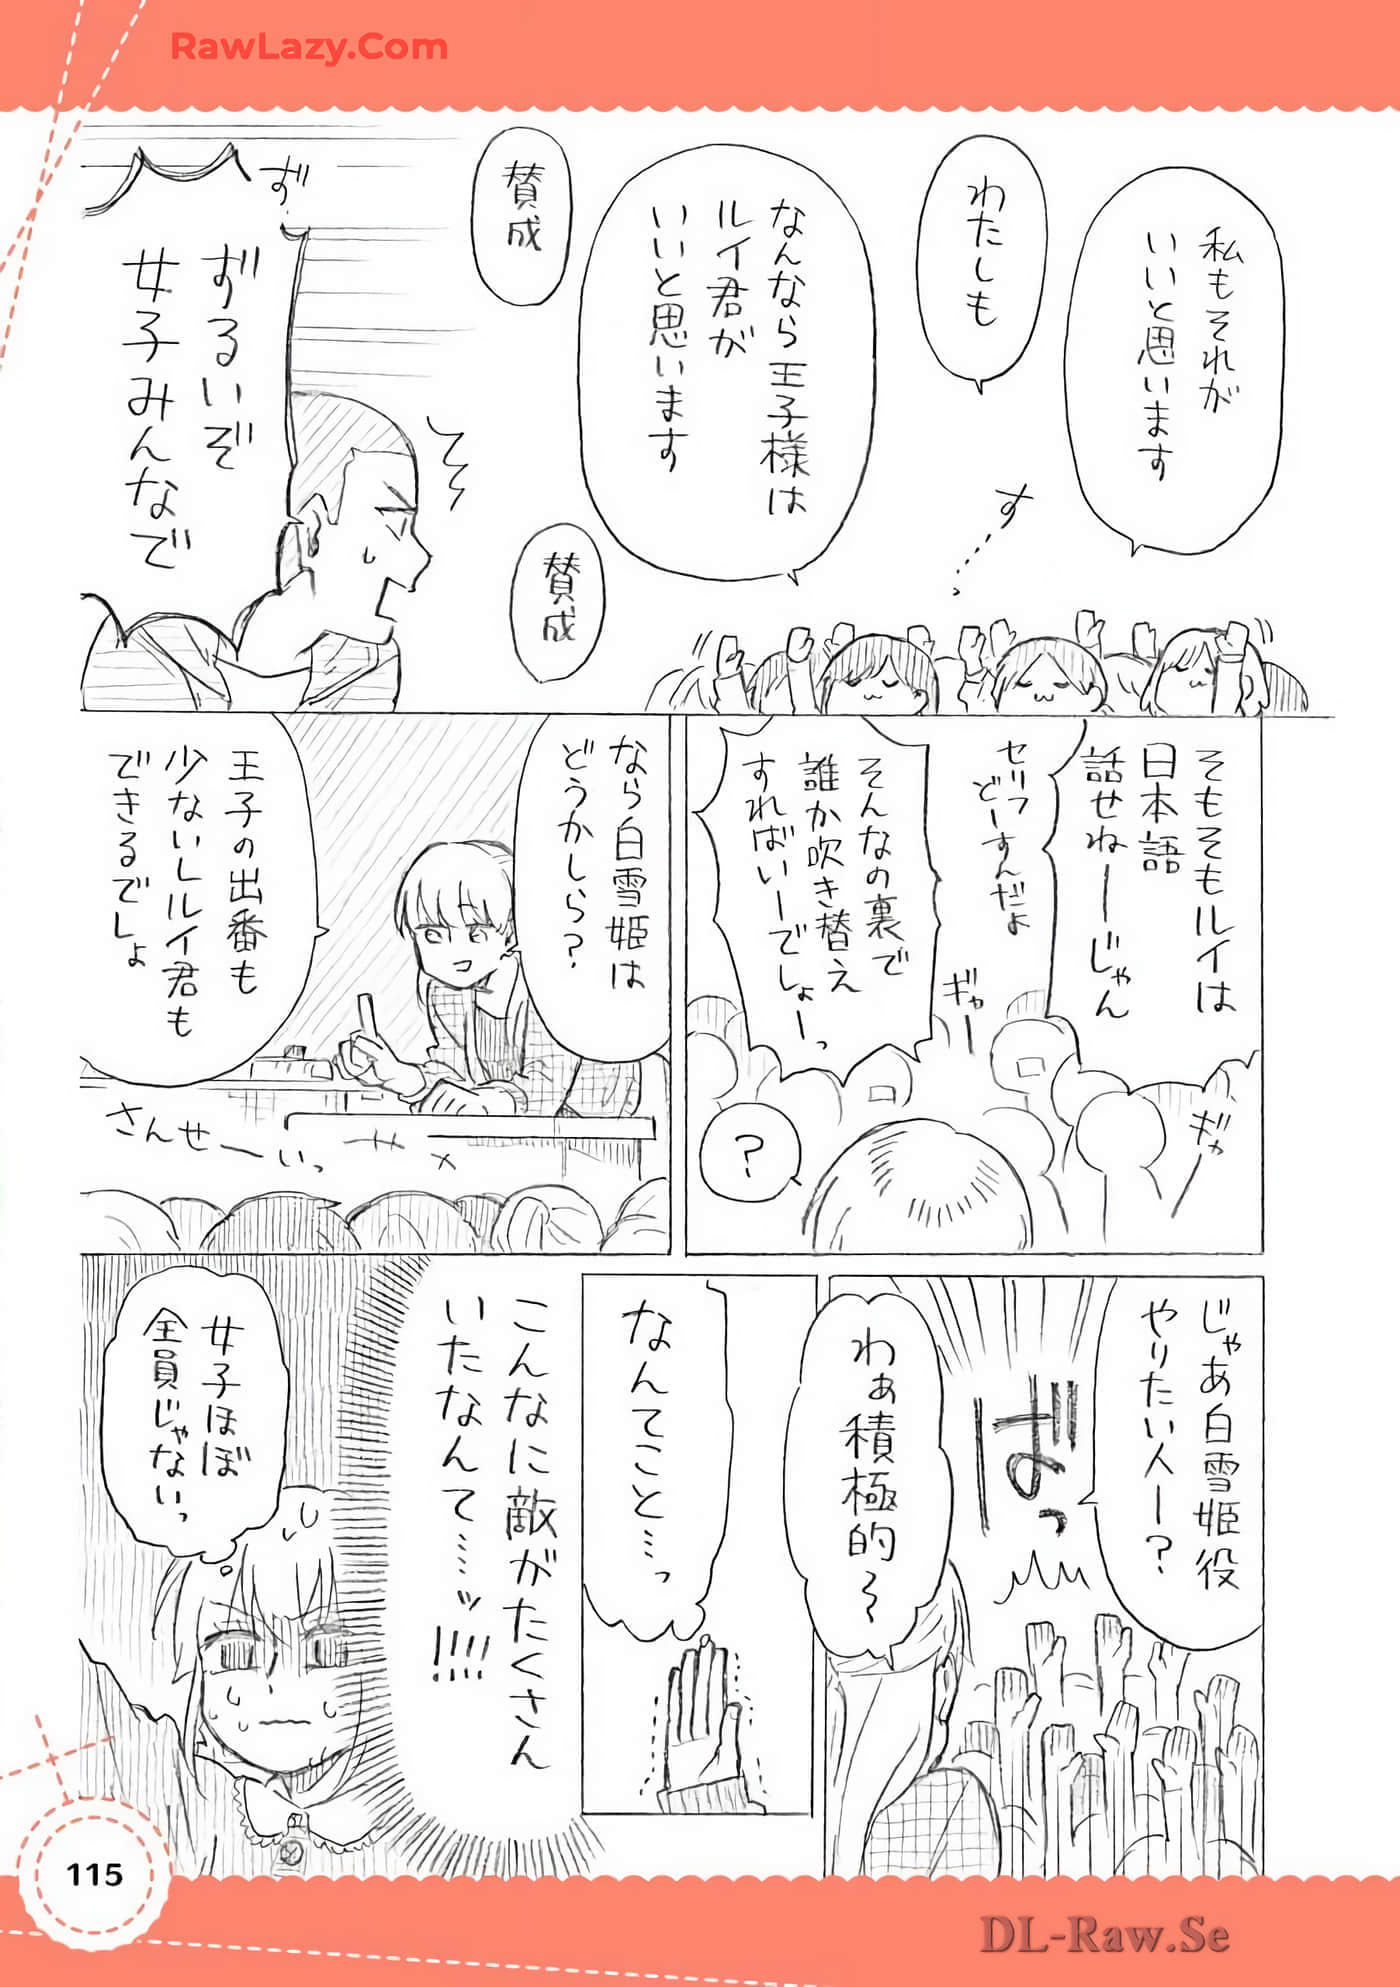 RawLazy.Com
私もそれが
いいと思います
わたしも
なんなら王子様は
ルイ君が
いいと思います
賛成
す
賛成
ず
ずるいぞ
女子みんなで
そもそもルイは
日本語
話せねーじゃん
セリフ
どーすんだよ
そんなの裏で
誰か吹き替え
すればいーでしょーっ
ギャー
ギャー
?
なら白雪姫は
どうかしら?
王子の出番も
少ないしルイ君も
できるでしょ
さんせーいっ
じゃあ白雪姫役
やりたい人ー?
ばっ
わぁ積極的〜
なんてこと…っ
こんなに敵がたくさん
いたなんて……ッ
!!!!
女子ほぼ
全員じゃないっ
115
DL-Raw.Se